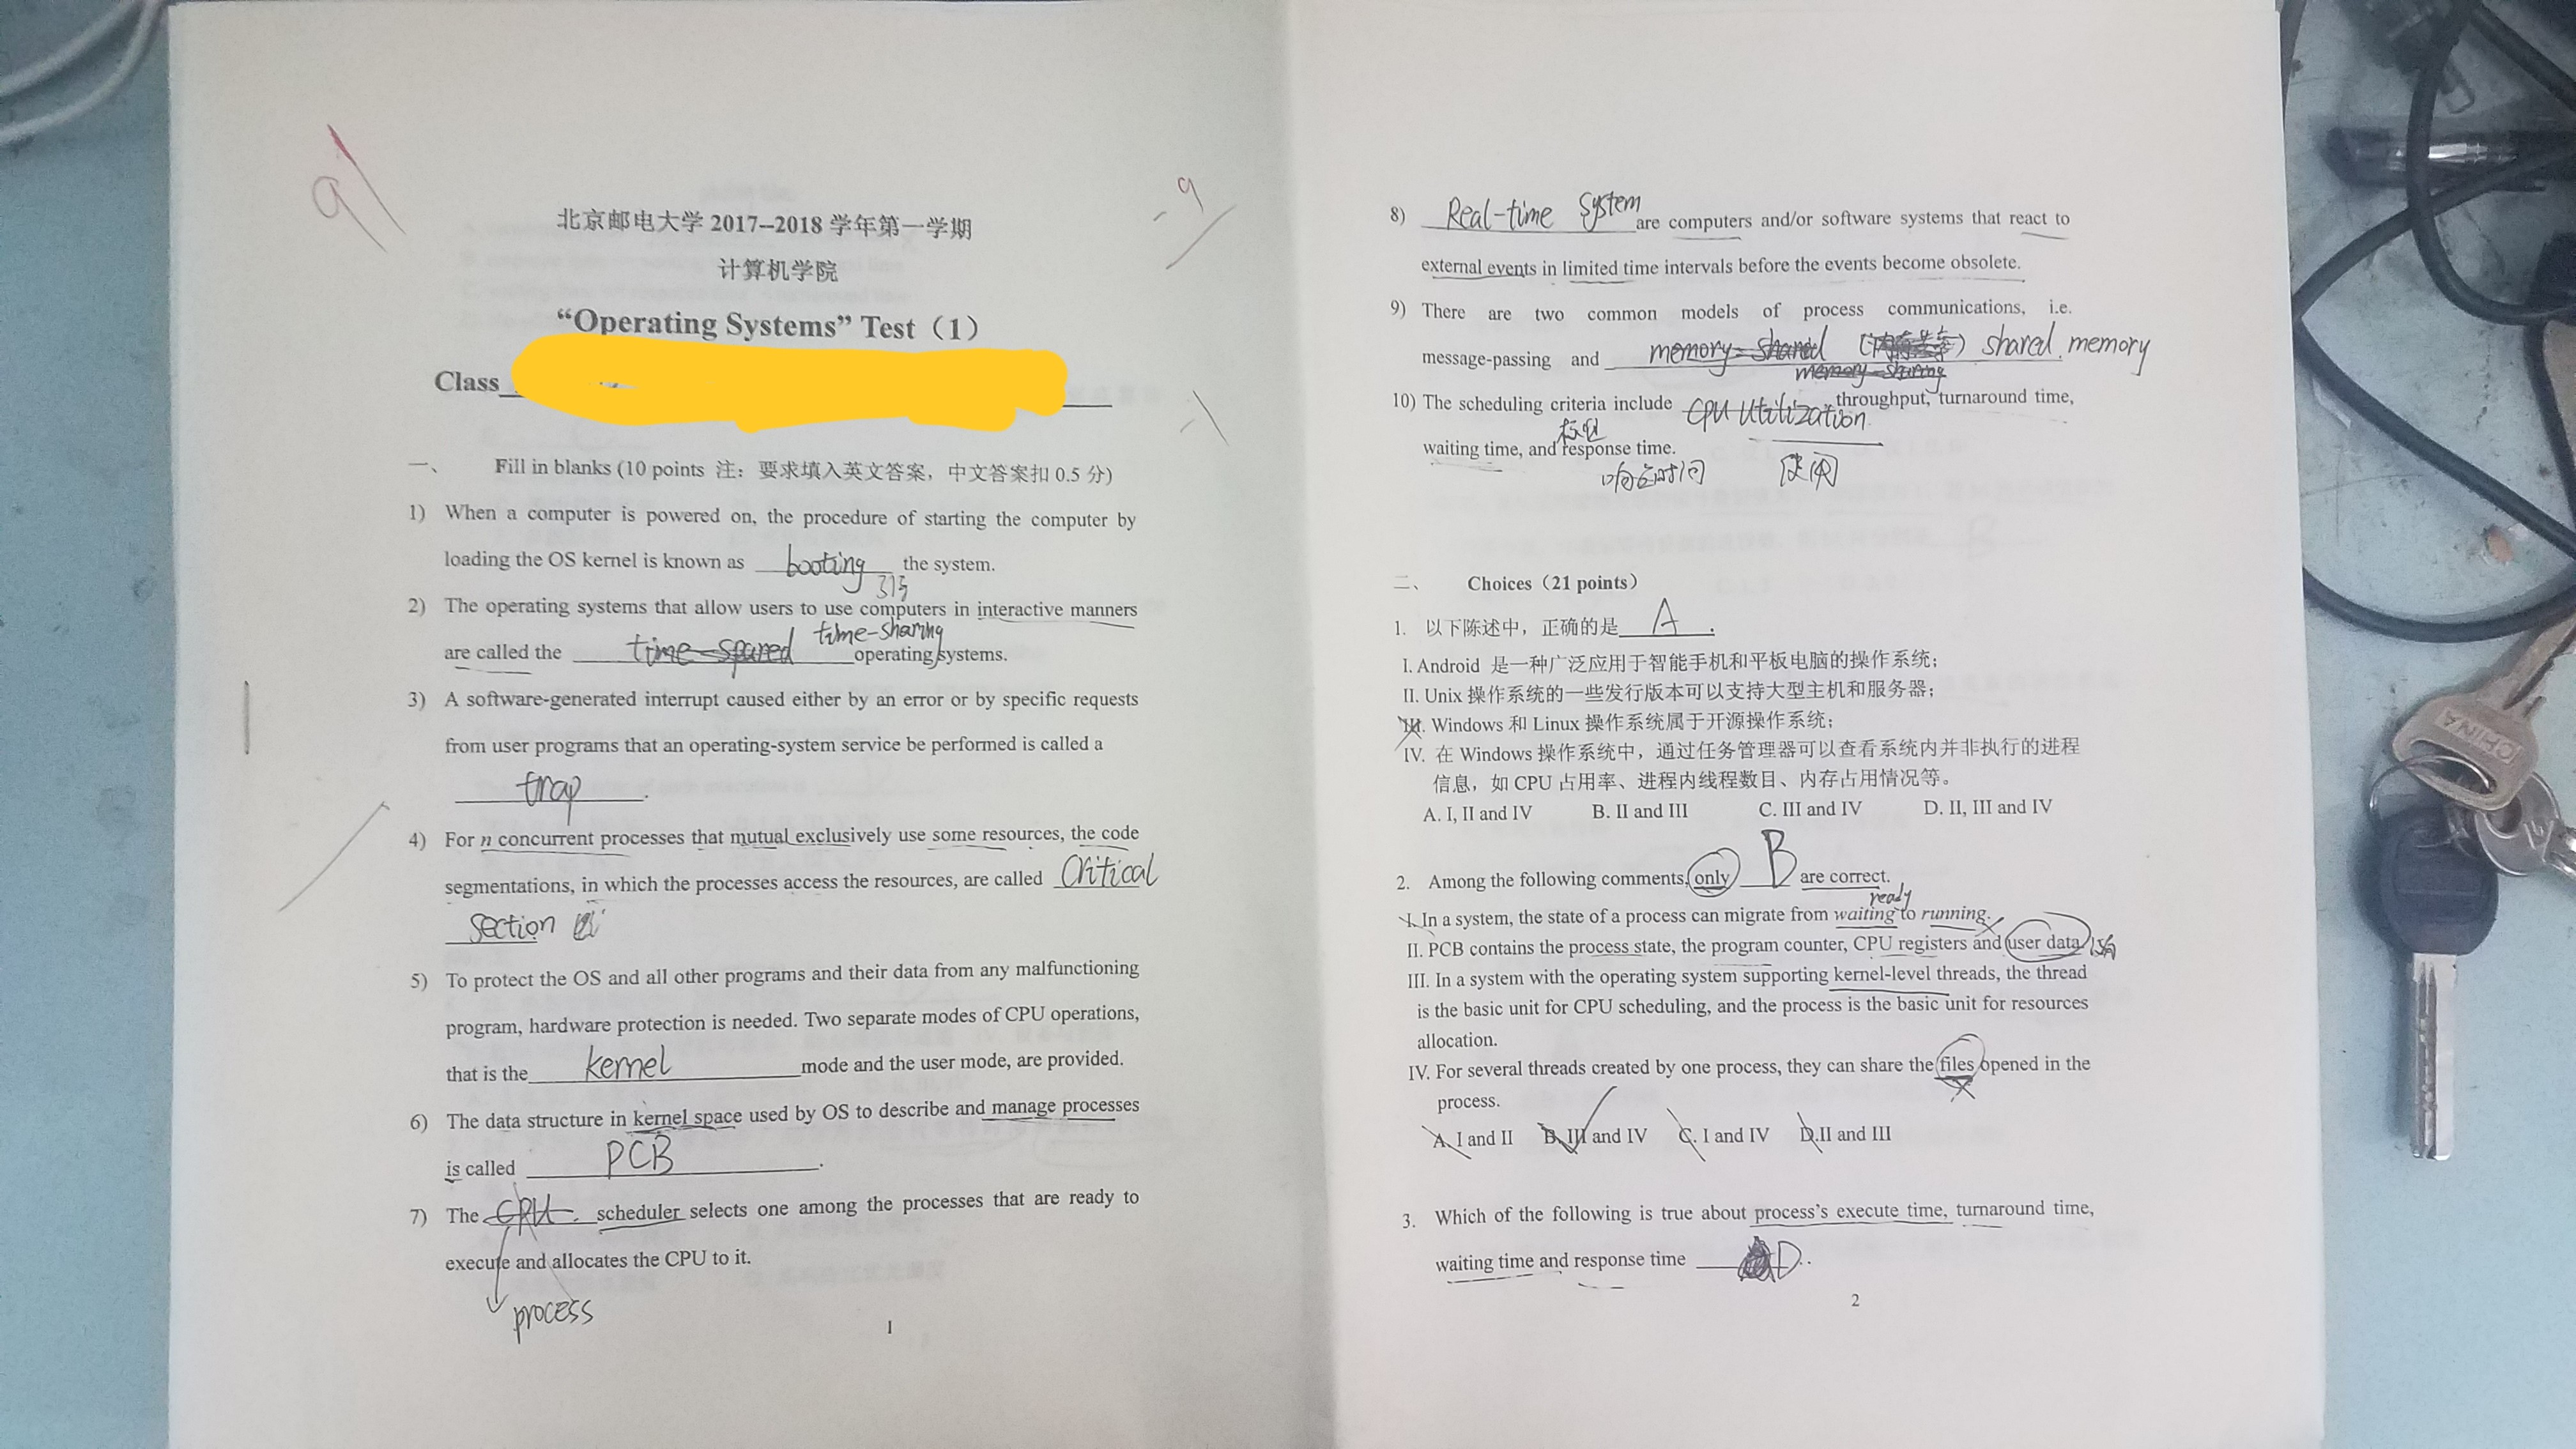 91
-9
北京邮电大学 2017--2018 学年第一学期
计算机学院
“Operating Systems” Test（1）
Class
-1
一、 Fill in blanks (10 points 注：要求填入英文答案，中文答案扣 0.5 分)
1) When a computer is powered on, the procedure of starting the computer by
loading the OS kernel is known as booting the system.
2) The operating systems that allow users to use computers in interactive manners
time-sharing
are called the time-spared operating systems.
3) A software-generated interrupt caused either by an error or by specific requests
from user programs that an operating-system service be performed is called a
trap.
4) For n concurrent processes that mutual exclusively use some resources, the code
segmentations, in which the processes access the resources, are called Critical
section
5) To protect the OS and all other programs and their data from any malfunctioning
program, hardware protection is needed. Two separate modes of CPU operations,
that is the kernel mode and the user mode, are provided.
6) The data structure in kernel space used by OS to describe and manage processes
is called PCB.
7) The CPU. scheduler selects one among the processes that are ready to
execute and allocates the CPU to it.
process
1
8) Real-time System are computers and/or software systems that react to
external events in limited time intervals before the events become obsolete.
9) There are two common models of process communications, i.e.
message-passing and memory-shared (内存共享) shared memory
memory-sharing
10) The scheduling criteria include CPU utilization, throughput, turnaround time,
waiting time, and response time.
响应时间 使用
二、 Choices（21 points）
1. 以下陈述中，正确的是 A .
I. Android 是一种广泛应用于智能手机和平板电脑的操作系统；
II. Unix 操作系统的一些发行版本可以支持大型主机和服务器；
III. Windows 和 Linux 操作系统属于开源操作系统；
IV. 在 Windows 操作系统中，通过任务管理器可以查看系统内并非执行的进程
信息，如 CPU 占用率、进程内线程数目、内存占用情况等。
A. I, II and IV B. II and III C. III and IV D. II, III and IV
2. Among the following comments, only B are correct.
ready
I. In a system, the state of a process can migrate from waiting to running.
II. PCB contains the process state, the program counter, CPU registers and user data.
III. In a system with the operating system supporting kernel-level threads, the thread
is the basic unit for CPU scheduling, and the process is the basic unit for resources
allocation.
IV. For several threads created by one process, they can share the files opened in the
process.
A. I and II B. III and IV C. I and IV D.II and III
3. Which of the following is true about process’s execute time, turnaround time,
waiting time and response time D .
2
CHINA